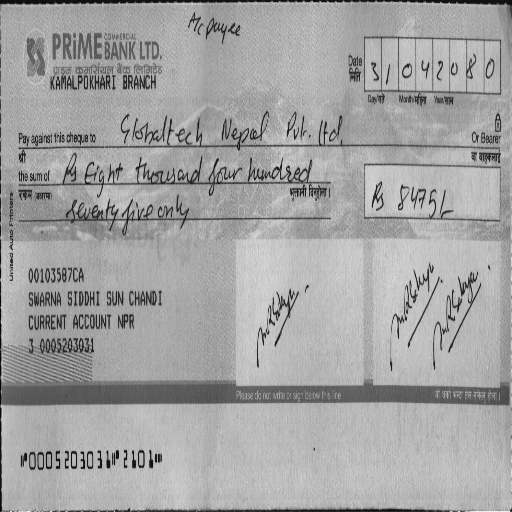 A/c payee
PRIME COMMERCIAL BANK LTD.
प्राइम कमर्सियल बैंक लिमिटेड
KAMALPOKHARI BRANCH
Date
मिति
3 1 0 4 2 0 8 0
Day/गते Month/महिना Year/साल
Pay against this cheque to Globaltech Nepal Pvt. ltd. Or Bearer
श्री वा वाहकलाई
the sum of Rs Eight thousand four hundred
रकम (अक्षरमा) भुक्तानी दिनुहोला ।
seventy five only
Rs 8475/-
United Auto Printers
00103587CA
SWARNA SIDDHI SUN CHANDI
CURRENT ACCOUNT NPR
3 0005203031
Please do not write or sign below this line
⑈0005203031⑈2101⑈